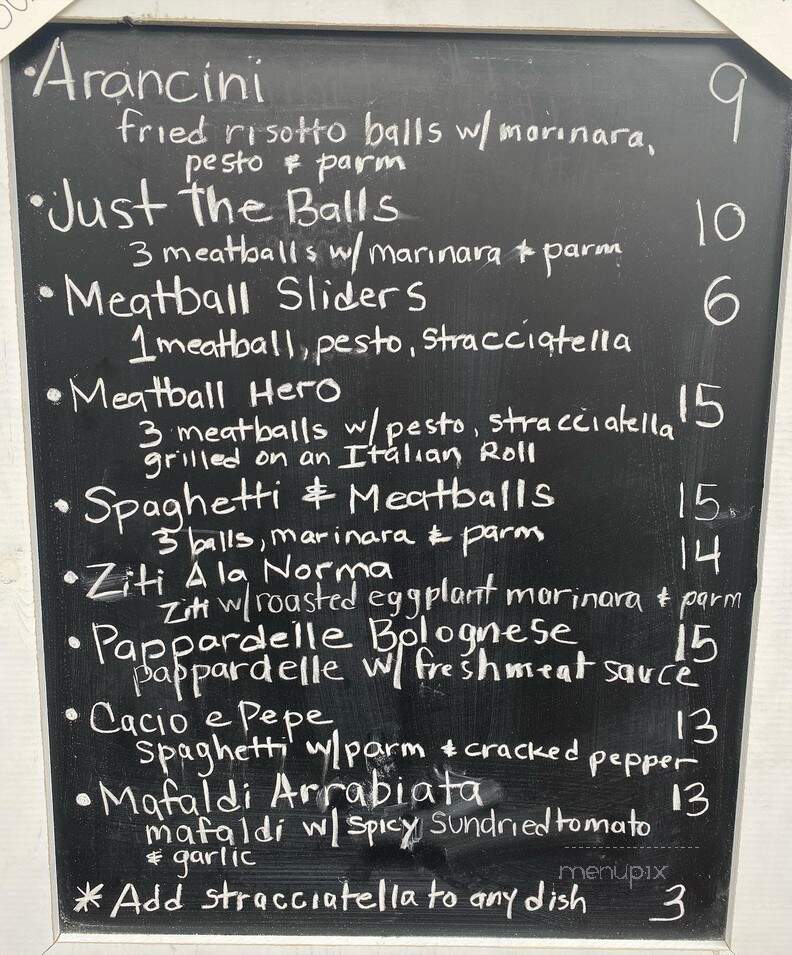 • Arancini 9
fried risotto balls w/ marinara,
pesto & parm
• Just the Balls 10
3 meatballs w/ marinara & parm
• Meatball Sliders 6
1 meatball, pesto, stracciatella
• Meatball Hero 15
3 meatballs w/ pesto, stracciatella
grilled on an Italian Roll
• Spaghetti & Meatballs 15
3 balls, marinara & parm
• Ziti A la Norma 14
Ziti w/ roasted eggplant marinara & parm
• Pappardelle Bolognese 15
pappardelle w/ fresh meat sauce
• Cacio e Pepe 13
Spaghetti w/ parm & cracked pepper
• Mafaldi Arrabiata 13
mafaldi w/ spicy sundried tomato
& garlic
menupix
* Add stracciatella to any dish 3